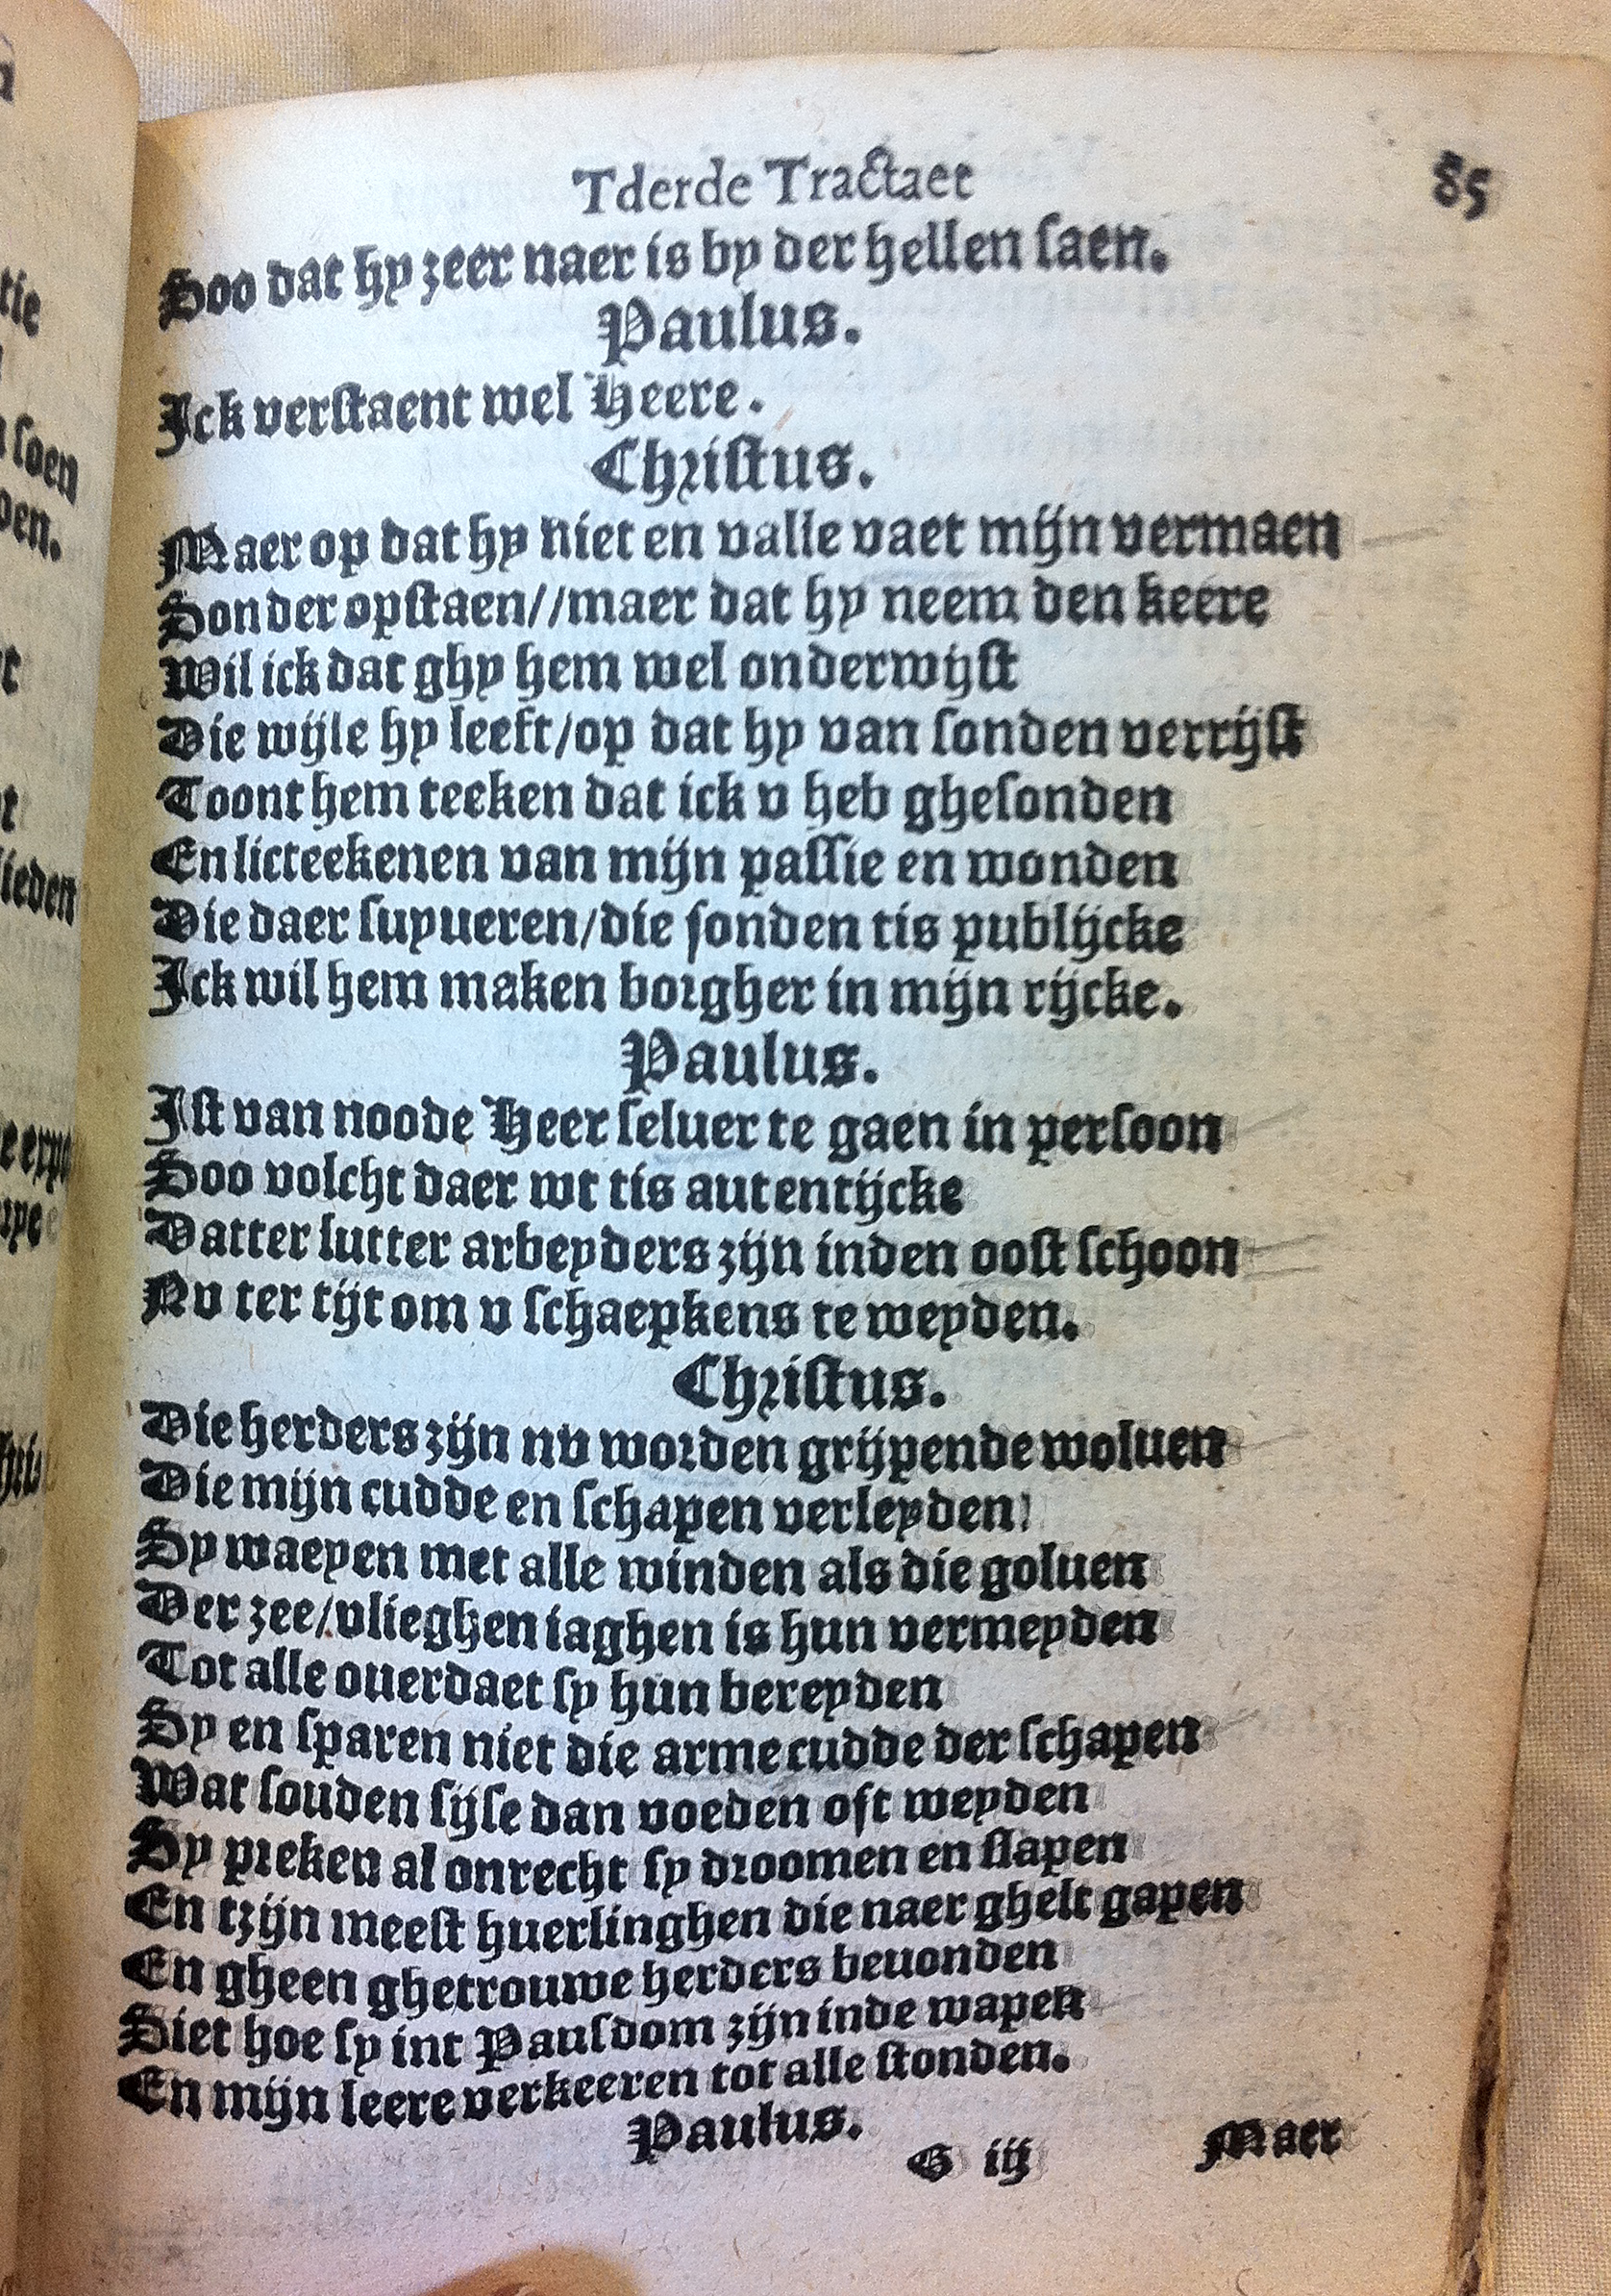 Tderde Tractaet 85
Soo dat hy zeer naer is by der hellen saen.
Paulus.
Ick verstaent wel Heere.
Christus.
Maer op dat hy niet en valle vaet mijn vermaen
Sonder opstaen//maer dat hy neem den keere
Wil ick dat ghy hem wel onderwijst
Die wijle hy leeft/op dat hy van sonden verrijst
Toont hem teeken dat ick v heb ghesonden
En licteekenen van mijn passie en wonden
Die daer supueren/die sonden tis publijcke
Ick wil hem maken borgher in mijn rijcke.
Paulus.
Ist van noode Heer seluer te gaen in persoon
Soo volcht daer wt tis autentijcke
Datter lutter arbeyders zijn inden oost schoon
Nv ter tijt om v schaepkens te weyden.
Christus.
Die herders zijn nv worden grijpende woluen
Die mijn cudde en schapen verleyden
Sy waeyen met alle winden als die goluen
Der zee/vlieghen iaghen is hun vermeyden
Tot alle ouerdaet sy hun bereyden
Sy en sparen niet die arme cudde der schapen
Wat souden sijse dan voeden oft weyden
Sy preken al onrecht sy droomen en slapen
En tzijn meest huerlinghen die naer ghelt gapen
En gheen ghetrouwe herders beuonden
Siet hoe sy int Pausdom zijn inde wapen
En mijn leere verkeeren tot alle stonden.
Paulus.
G iij Maer